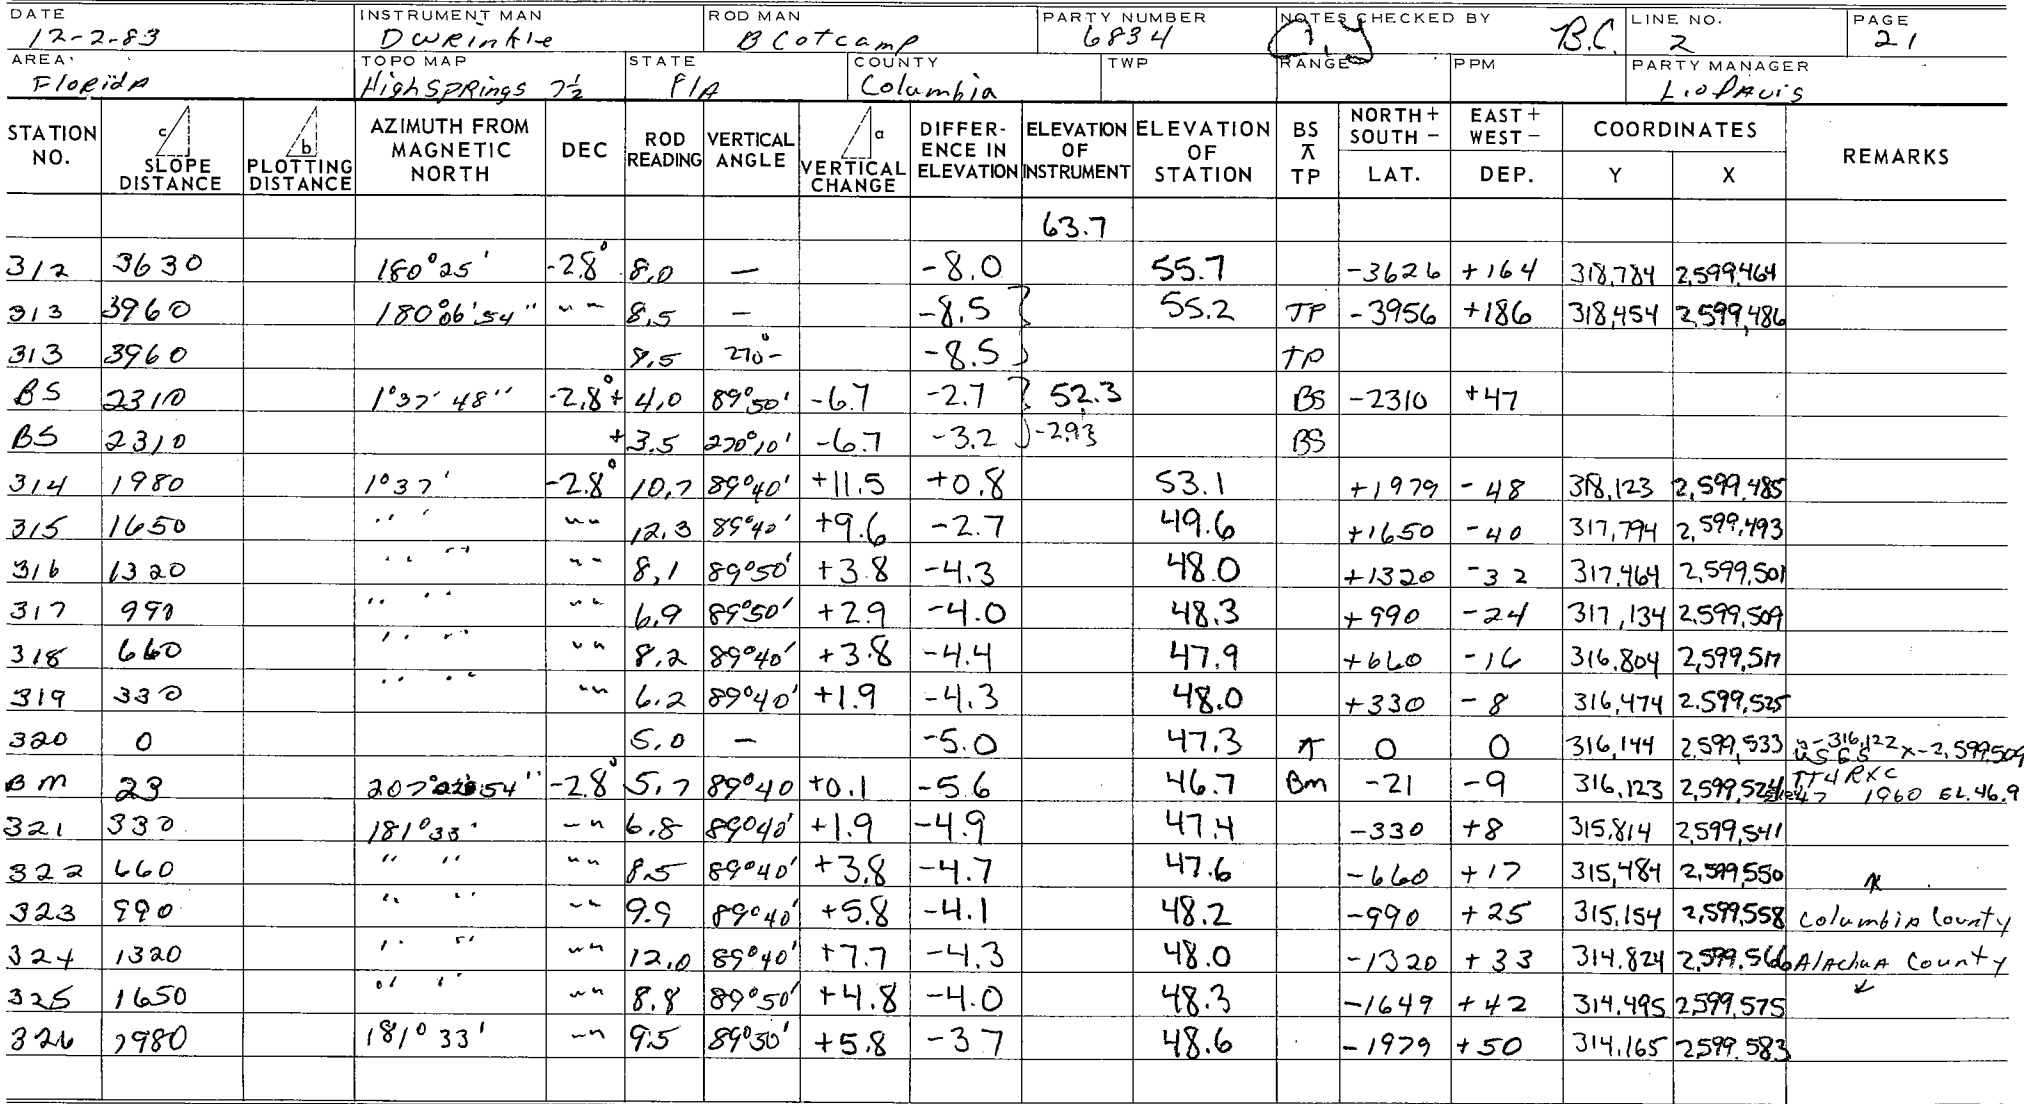 DATE INSTRUMENT MAN ROD MAN PARTY NUMBER NOTES CHECKED BY LINE NO. PAGE
12-2-83 DWRinkle B Cotcamp 6834 B.C. 2 21
AREA TOPO MAP STATE COUNTY TWP RANGE PPM PARTY MANAGER
Florida High SPRings 7½ FlA Columbia
STATION NO. c SLOPE DISTANCE b PLOTTING DISTANCE AZIMUTH FROM MAGNETIC NORTH DEC ROD READING VERTICAL ANGLE a VERTICAL CHANGE DIFFER-ENCE IN ELEVATION ELEVATION OF INSTRUMENT ELEVATION OF STATION BS ⊼ TP NORTH + SOUTH - LAT. EAST + WEST - DEP. COORDINATES Y X REMARKS
63.7
312 3630 180°25' -2.8° 8.0 — -8.0 55.7 -3626 +164 318,784 2,599,464
313 3960 180°06'54" " " 8.5 — -8.5 55.2 TP -3956 +186 318,454 2,599,486
313 3960 8.5 270°- -8.5 TP
BS 2310 1°37'48" -2.8° + 4.0 89°50' -6.7 -2.7 52.3 BS -2310 +47
BS 2310 +3.5 270°10' -6.7 -3.2 -2.93 BS
314 1980 1°37' -2.8° 10.7 89°40' +11.5 +0.8 53.1 +1979 -48 318,123 2,599,485
315 1650 " " " " 12.3 89°40' +9.6 -2.7 49.6 +1650 -40 317,794 2,599,493
316 1320 " " " " 8.1 89°50' +3.8 -4.3 48.0 +1320 -32 317,464 2,599,501
317 990 " " " " 6.9 89°50' +2.9 -4.0 48.3 +990 -24 317,134 2,599,509
318 660 " " " " 8.2 89°40' +3.8 -4.4 47.9 +660 -16 316,804 2,599,517
319 330 " " " " 6.2 89°40' +1.9 -4.3 48.0 +330 -8 316,474 2.599,525
320 0 5.0 — -5.0 47.3 ⊼ 0 0 316,144 2,599,533 y-316,122 x-2,599,509
USGS
BM 23 -2.8° 5.7 89°40 +0.1 -5.6 46.7 Bm -21 -9 316,123 2,599,524 TT4 RXC
1960 EL.46.9
321 330 181°33' " " 6.8 89°40' +1.9 -4.9 47.4 -330 +8 315,814 2,599,541
322 660 " " " " 8.5 89°40' +3.8 -4.7 47.6 -660 +17 315,484 2,599,550
323 990 " " " " 9.9 89°40' +5.8 -4.1 48.2 -990 +25 315,154 2,599,558 Columbia County
324 1320 " " " " 12.0 89°40' +7.7 -4.3 48.0 -1320 +33 314.824 2,599.566 AlAchuA County
325 1650 " " " " 8.8 89°50' +4.8 -4.0 48.3 -1649 +42 314.495 2599,575
326 1980 181°33' " " 9.5 89°50' +5.8 -3.7 48.6 -1979 +50 314.165 2599.583